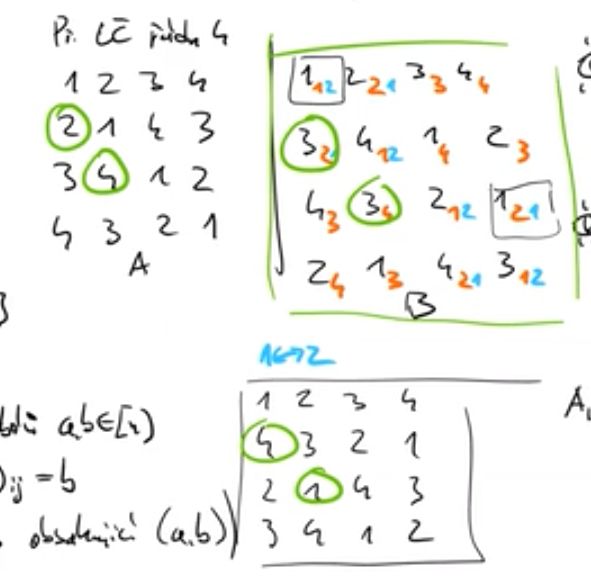 Př. LČ řádu 4
1 2 3 4
2 1 4 3
3 4 1 2
4 3 2 1
A
1₁₂ 2₂₁ 3₃ 4₄
3₂ 4₁₂ 1₄ 2₃
4₃ 3₄ 2₁₂ 1₂₁
2₄ 1₃ 4₂₁ 3₁₂
B
1↔2
1 2 3 4
4 3 2 1
2 1 4 3
3 4 1 2
a,b∈[n]
ij = b
obsahující (a,b)
A